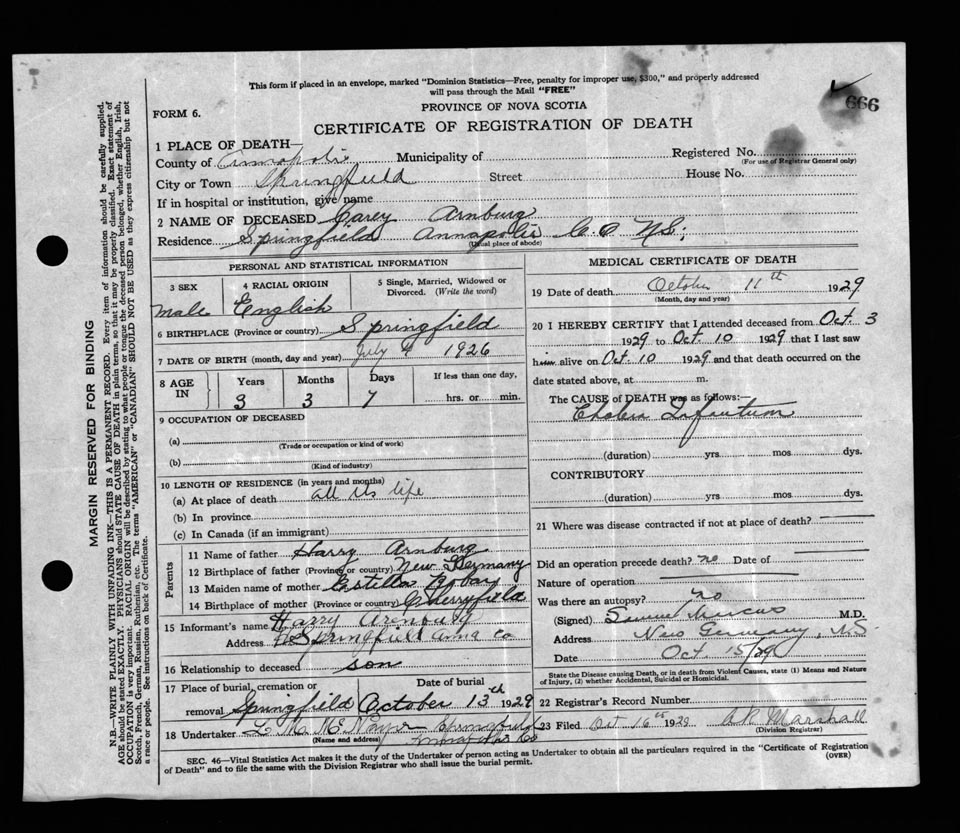 This form if placed in an envelope, marked "Dominion Statistics—Free, penalty for improper use, $300," and properly addressed
will pass through the Mail "FREE"
PROVINCE OF NOVA SCOTIA
666
FORM 6.
CERTIFICATE OF REGISTRATION OF DEATH
MARGIN RESERVED FOR BINDING
N.B.—WRITE PLAINLY WITH UNFADING INK—THIS IS A PERMANENT RECORD. Every item of information should be carefully supplied.
AGE should be stated EXACTLY. PHYSICIANS should STATE CAUSE OF DEATH in plain terms, so that it may be properly classified. Exact statement of
OCCUPATION is very important. RACIAL ORIGIN will be described by stating to what people or tongue the deceased person belonged, whether English, Irish,
Scotch, French, German, Russian, Ruthenian, etc. The terms "AMERICAN" or "CANADIAN" SHOULD NOT BE USED as they express citizenship but not
a race or people. See instructions on back of Certificate.
1 PLACE OF DEATH—
County of Annapolis Municipality of Registered No.
(For use of Registrar General only)
City or Town Springfield Street House No.
If in hospital or institution, give name
2 NAME OF DECEASED Carey Arnburg
Residence Springfield Annapolis Co NS;
(Usual place of abode)
PERSONAL AND STATISTICAL INFORMATION
3 SEX 4 RACIAL ORIGIN 5 Single, Married, Widowed or
Divorced. (Write the word)
Male English
6 BIRTHPLACE (Province or country) Springfield
7 DATE OF BIRTH (month, day and year) July 4 1926
8 AGE IN Years Months Days If less than one day,
3 3 7 hrs. or min.
9 OCCUPATION OF DECEASED
(a)
(Trade or occupation or kind of work)
(b)
(Kind of industry)
10 LENGTH OF RESIDENCE (in years and months)
(a) At place of death all its life
(b) In province
(c) In Canada (if an immigrant)
Parents
11 Name of father Harry Arnburg
12 Birthplace of father (Province or country) New Germany
13 Maiden name of mother Estella
14 Birthplace of mother (Province or country) Cherryfield
15 Informant's name Harry Arenburg
Address Springfield Anna Co
16 Relationship to deceased son
17 Place of burial, cremation or Date of burial
removal Springfield October 13th 1929
18 Undertaker Springfield
(Name and address) Annapolis Co
MEDICAL CERTIFICATE OF DEATH
19 Date of death October 11th 1929
(Month, day and year)
20 I HEREBY CERTIFY that I attended deceased from Oct. 3
1929 to Oct. 10 1929 that I last saw
him alive on Oct. 10 1929 and that death occurred on the
date stated above, at m.
The CAUSE of DEATH was as follows:—
Cholera Infantum
(duration) yrs mos dys.
CONTRIBUTORY
(duration) yrs. mos dys.
21 Where was disease contracted if not at place of death?
Did an operation precede death? no Date of
Nature of operation
Was there an autopsy? no
(Signed) Samuel Marcus M.D.
Address New Germany, N.S.
Date Oct 15/29
State the Disease causing Death, or in death from Violent Causes, state (1) Means and Nature
of Injury, (2) whether Accidental, Suicidal or Homicidal.
22 Registrar's Record Number
23 Filed Oct 16th 1929 Marshall
(Division Registrar)
SEC. 46—Vital Statistics Act makes it the duty of the Undertaker of person acting as Undertaker to obtain all the particulars required in the "Certificate of Registration
of Death" and to file the same with the Division Registrar who shall issue the burial permit.
(OVER)